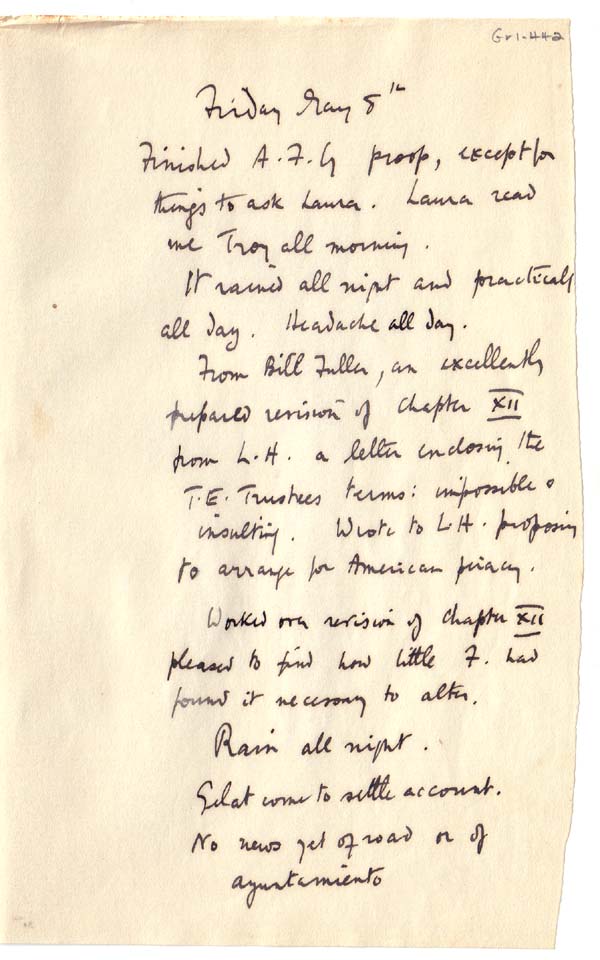 Gr1-442
Friday May 8th
Finished A.F.G proof, except for
things to ask Laura. Laura read
me Troy all morning.
It rained all night and practically
all day. Headache all day.
From Bill Fuller, an excellently
prepared revision of Chapter XII
from L.H. a letter enclosing the
T.E. Trustees terms: impossible &
insulting. Wrote to L.H. proposing
to arrange for American piracy.
Worked over revision of Chapter XII
pleased to find how little F. had
found it necessary to alter.
Rain all night.
Gelat come to settle account.
No news yet of road or of
ayuntamiento